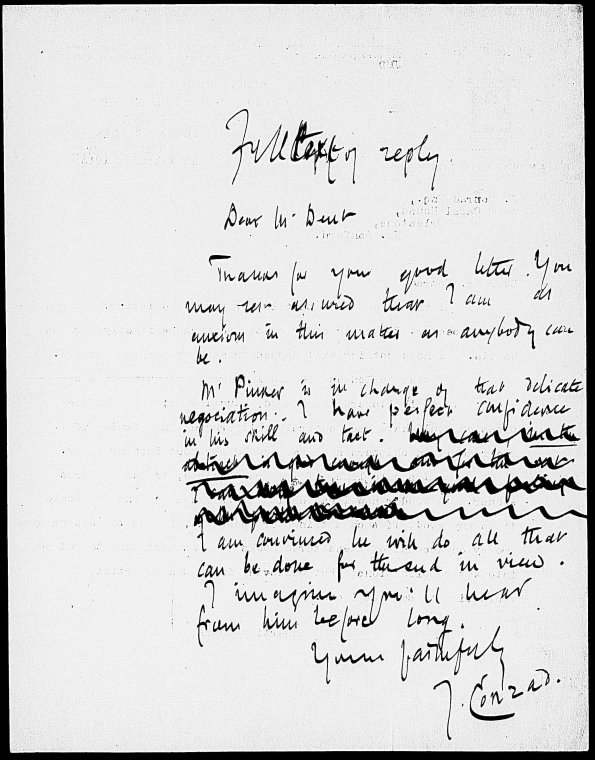 Full text of reply.
Dear Mr Dent
Thanks for your good letter. You
may rest assured that I am as
anxious in this matter as anybody can
be.
Mr Pinker is in charge of that delicate
negociation. I have perfect confidence
in his skill and tact.
I am convinced he will do all that
can be done for the end in view.
I imagine you'll hear
from him before long.
Yours faithfully
J. Conrad.